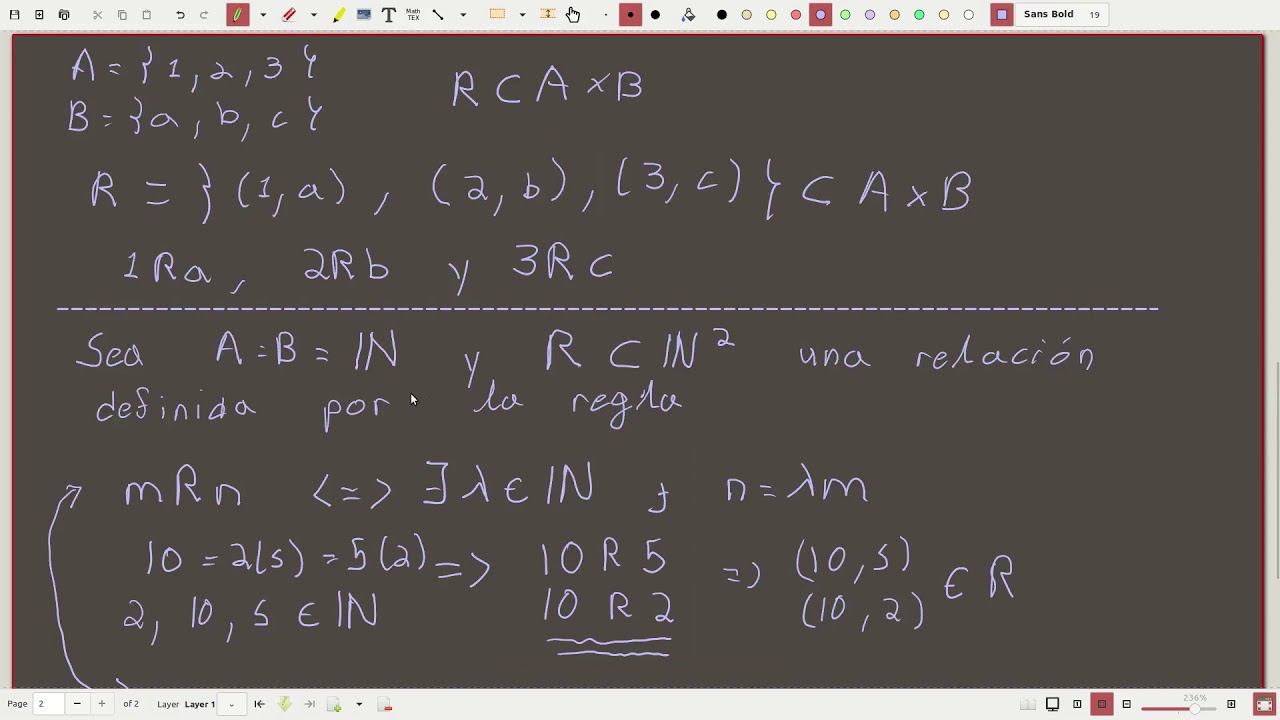 Math TEX T Sans Bold 19
A = {1, 2, 3}
B = {a, b, c}
R ⊂ A × B
R = {(1, a), (2, b), (3, c)} ⊂ A × B
1Ra, 2Rb y 3Rc
Sea A = B = ℕ y R ⊂ ℕ² una relación
definida por la regla
mRn <=> ∃ λ ∈ ℕ t n = λm
10 = 2(5) = 5(2) => 10 R 5 => (10, 5)
2, 10, 5 ∈ ℕ 10 R 2 (10, 2) ∈ R
Page 2 of 2 Layer Layer 1 236%